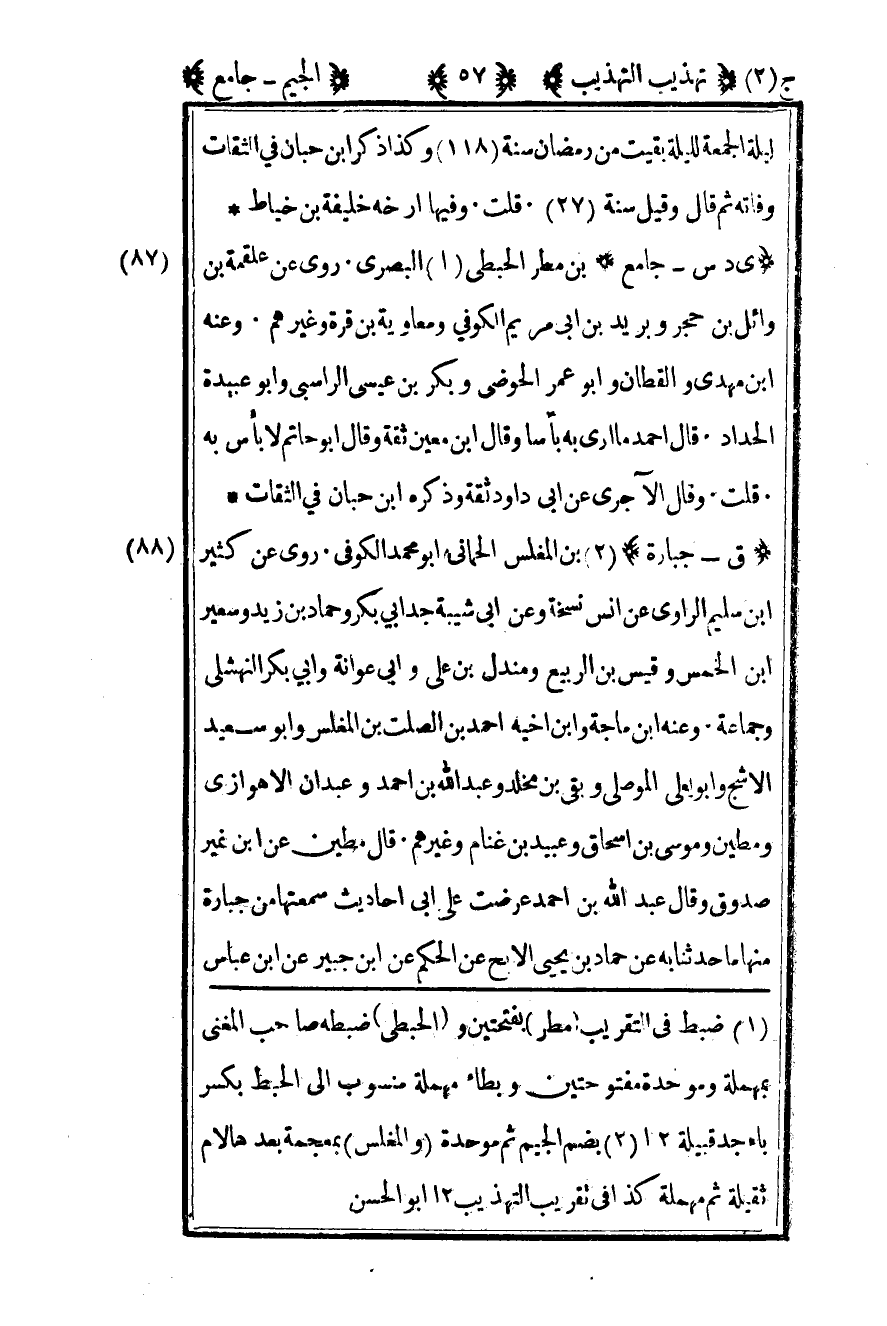 ج (٢) ﴿ تهذيب التهذيب ﴾ ﴿ ٥٧ ﴾ ﴿ الجيم ــ جامع ﴾
ليلة الجمعة لليلة بقيت من رمضان سنة (١١٨) وكذا ذكر ابن حبان في الثقات
وفاته ثم قال وقيل سنة (٢٧) ٠ قلت ٠ وفيها ارخه خليفة بن خياط *
(٨٧) ﴿ ى د س ــ جامع ﴾ بن مطر الحبطى (١) البصرى ٠ روى عن علقمة بن
وائل بن حجر و بريد بن ابى مريم الكوفي ومعاوية بن قرة وغيرهم ٠ وعنه
ابن مهدى و القطان و ابو عمر الحوضى و بكر بن عيسى الراسبى وابو عبيدة
الحداد ٠ قال احمد ما ارى به بأسا وقال ابن معين ثقة وقال ابو حاتم لا بأس به
٠ قلت ٠ وقال الآجرى عن ابى داود ثقة وذكره ابن حبان في الثقات *
(٨٨) ﴿ ق ــ جبارة ﴾ (٢) بن المغلس الحمانى ابو محمد الكوفى ٠ روى عن كثير
ابن سليم الراوى عن انس نسخة وعن ابى شيبة جد ابي بكر وحماد بن زيد وسعير
ابن الخمس و قيس بن الربيع ومندل بن على و ابى عوانة وابي بكر النهشلى
وجماعة ٠ وعنه ابن ماجة وابن اخيه احمد بن الصلت بن المغلس وابو سعيد
الاشج وابو يعلى الموصلى و بقى بن مخلد وعبد الله بن احمد و عبدان الاهوازى
ومطين وموسى بن اسحاق وعبيد بن غنام وغيرهم ٠ قال مطين عن ابن نمير
صدوق وقال عبد الله بن احمد عرضت على ابى احاديث سمعتها من جبارة
منها ما حدثنا به عن حماد بن يحيى الابح عن الحكم عن ابن جبير عن ابن عباس
(١) ضبط فى التقريب (مطر) بفتحتين و (الحبطى) ضبطه صاحب المغنى
بمهملة وموحدة مفتوحتين وبطاء مهملة منسوب الى الحبط بكسر
باء جد قبيلة ١٢ (٢) بضم الجيم ثم موحدة (والمغلس) بمعجمة بعدها لام
ثقيلة ثم مهملة كذا فى تقريب التهذيب ١٢ ابو الحسن